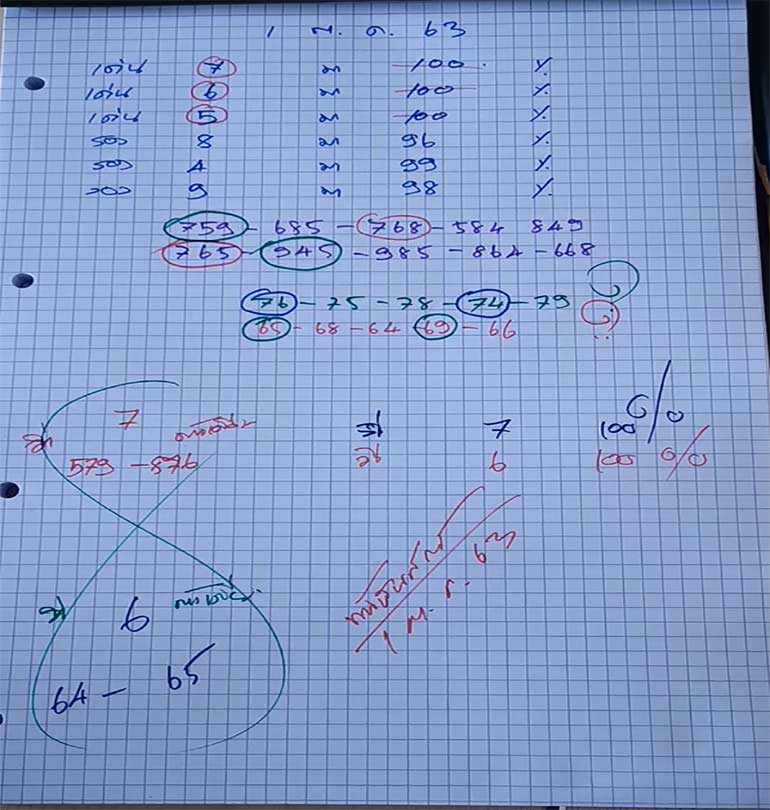 1 พ. ค. 63
เด่น 7 มา 100 %
เด่น 6 มา 100 %
เด่น 5 มา 100 %
รอง 8 มา 96 %
รอง 4 มา 99 %
รอง 9 มา 98 %
759 - 685 - 768 - 584 849
765 - 945 - 985 - 864 - 668
76 - 75 - 78 - 74 - 79
65 - 68 - 64 - 69 - 66
7
579 - 876
7 100 %
6 100 %
6
64 - 65
63